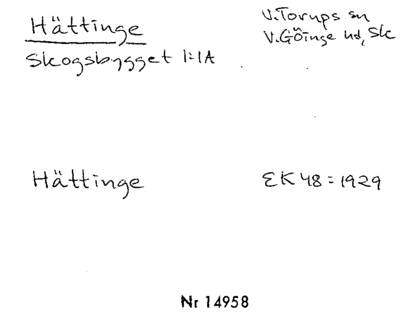 Hättinge
V. Torups sn
Skogsbygget 1:1A
V. Göinge hd, Sk
Hättinge
EK 48 = 1929
Nr 14958